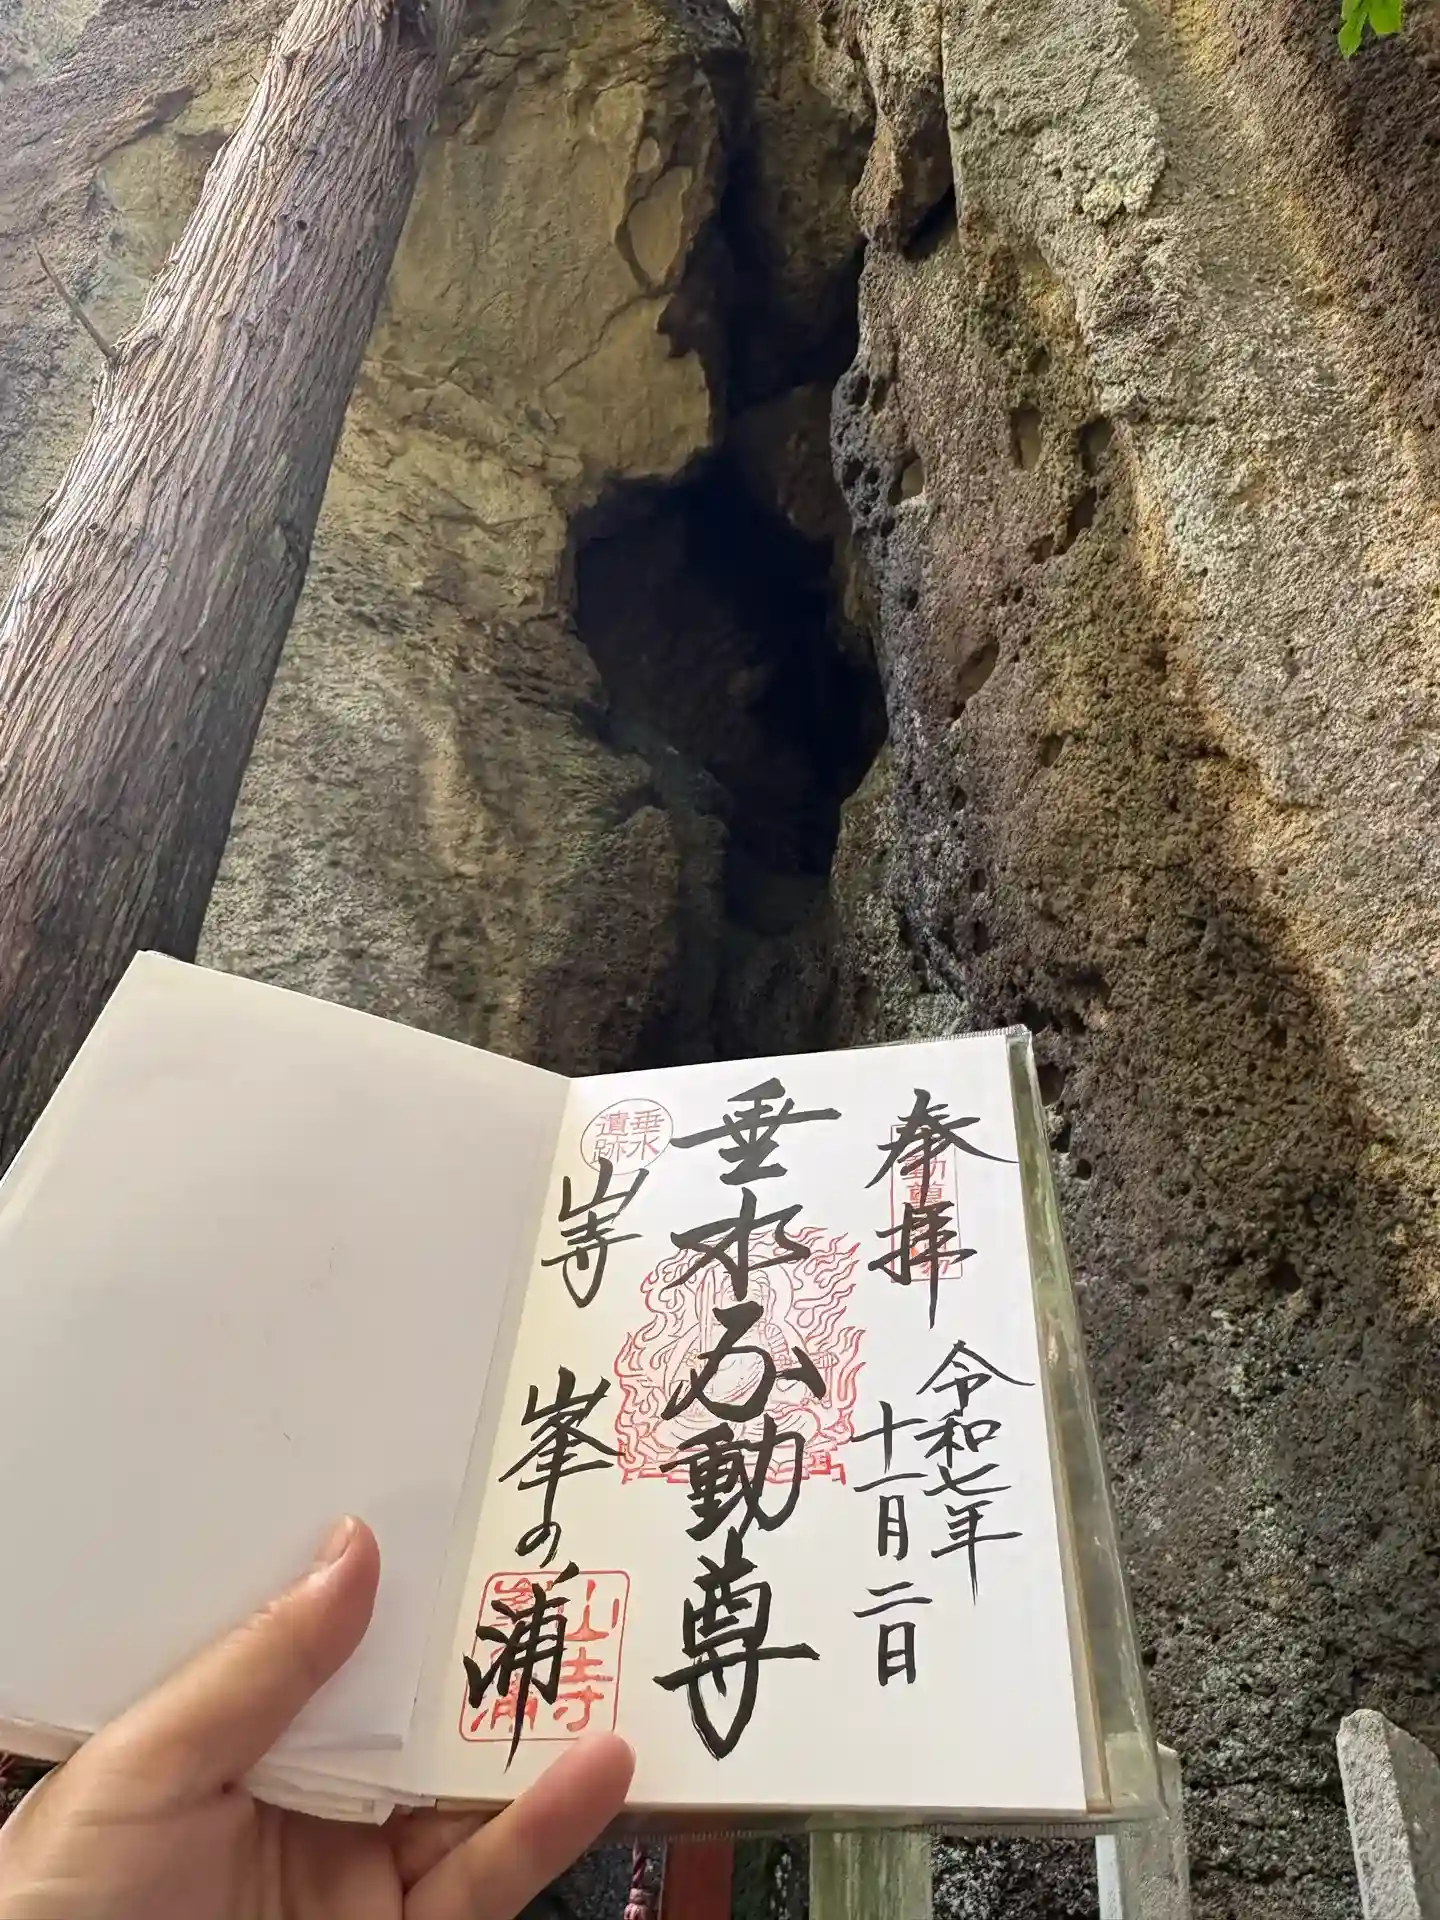 奉拝
令和七年
十一月二日
垂水不動尊
垂水
遺跡
山寺
峯の浦
山寺